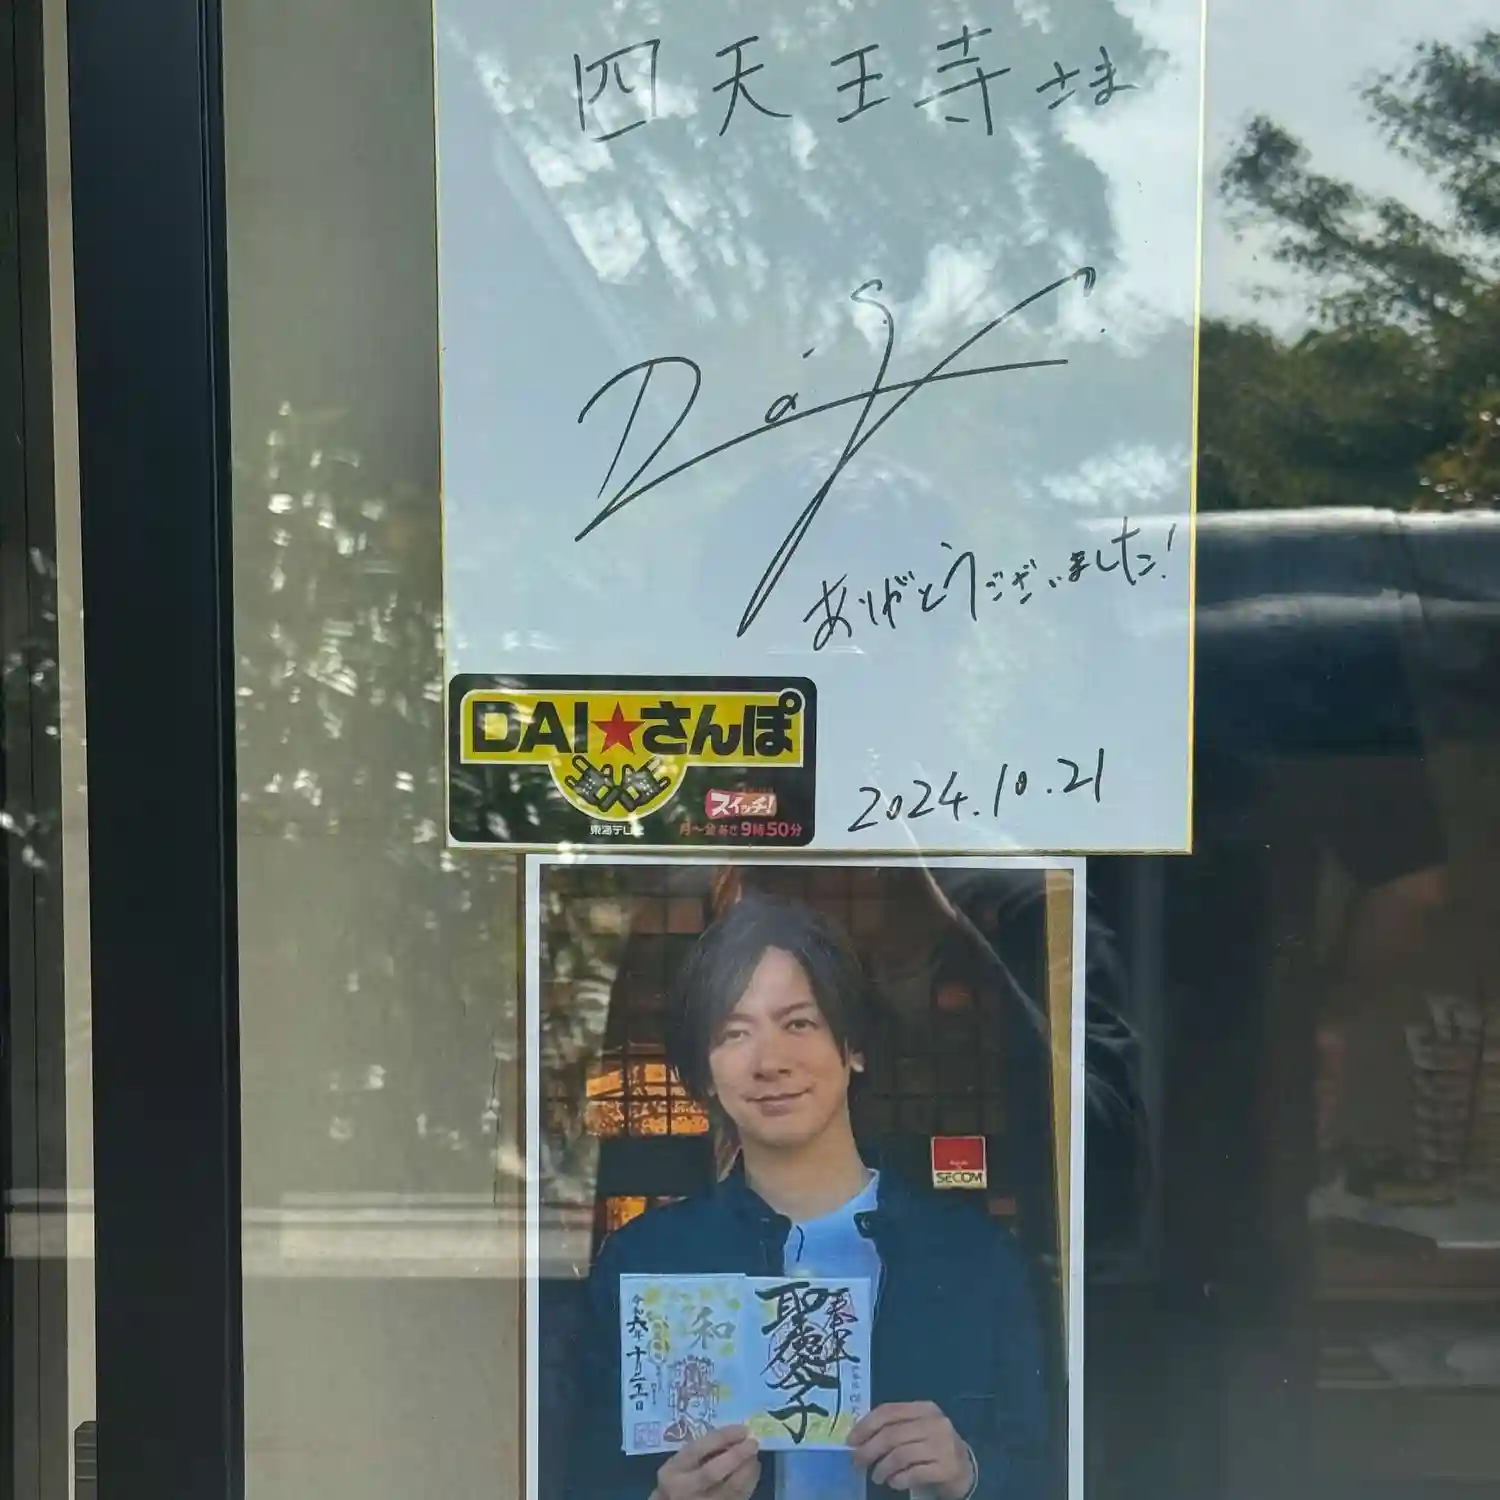 四天王寺さま
DaiGo
ありがとうございました!
DAI★さんぽ
東海テレビ
スイッチ!
月~金あさ9時50分
2024.10.21
SECOM
和
奉拝
聖徳太子